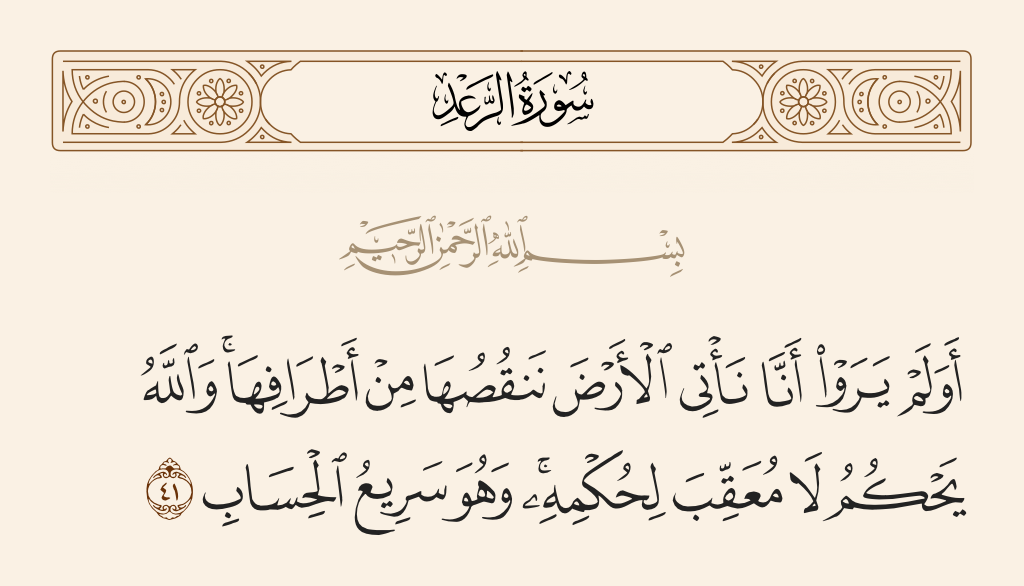 سُورَةُ الرَّعْدِ
بِسْمِ ٱللَّهِ ٱلرَّحْمَٰنِ ٱلرَّحِيمِ
أَوَلَمْ يَرَوْا۟ أَنَّا نَأْتِى ٱلْأَرْضَ نَنقُصُهَا مِنْ أَطْرَافِهَا ۚ وَٱللَّهُ
يَحْكُمُ لَا مُعَقِّبَ لِحُكْمِهِۦ ۚ وَهُوَ سَرِيعُ ٱلْحِسَابِ ٤١